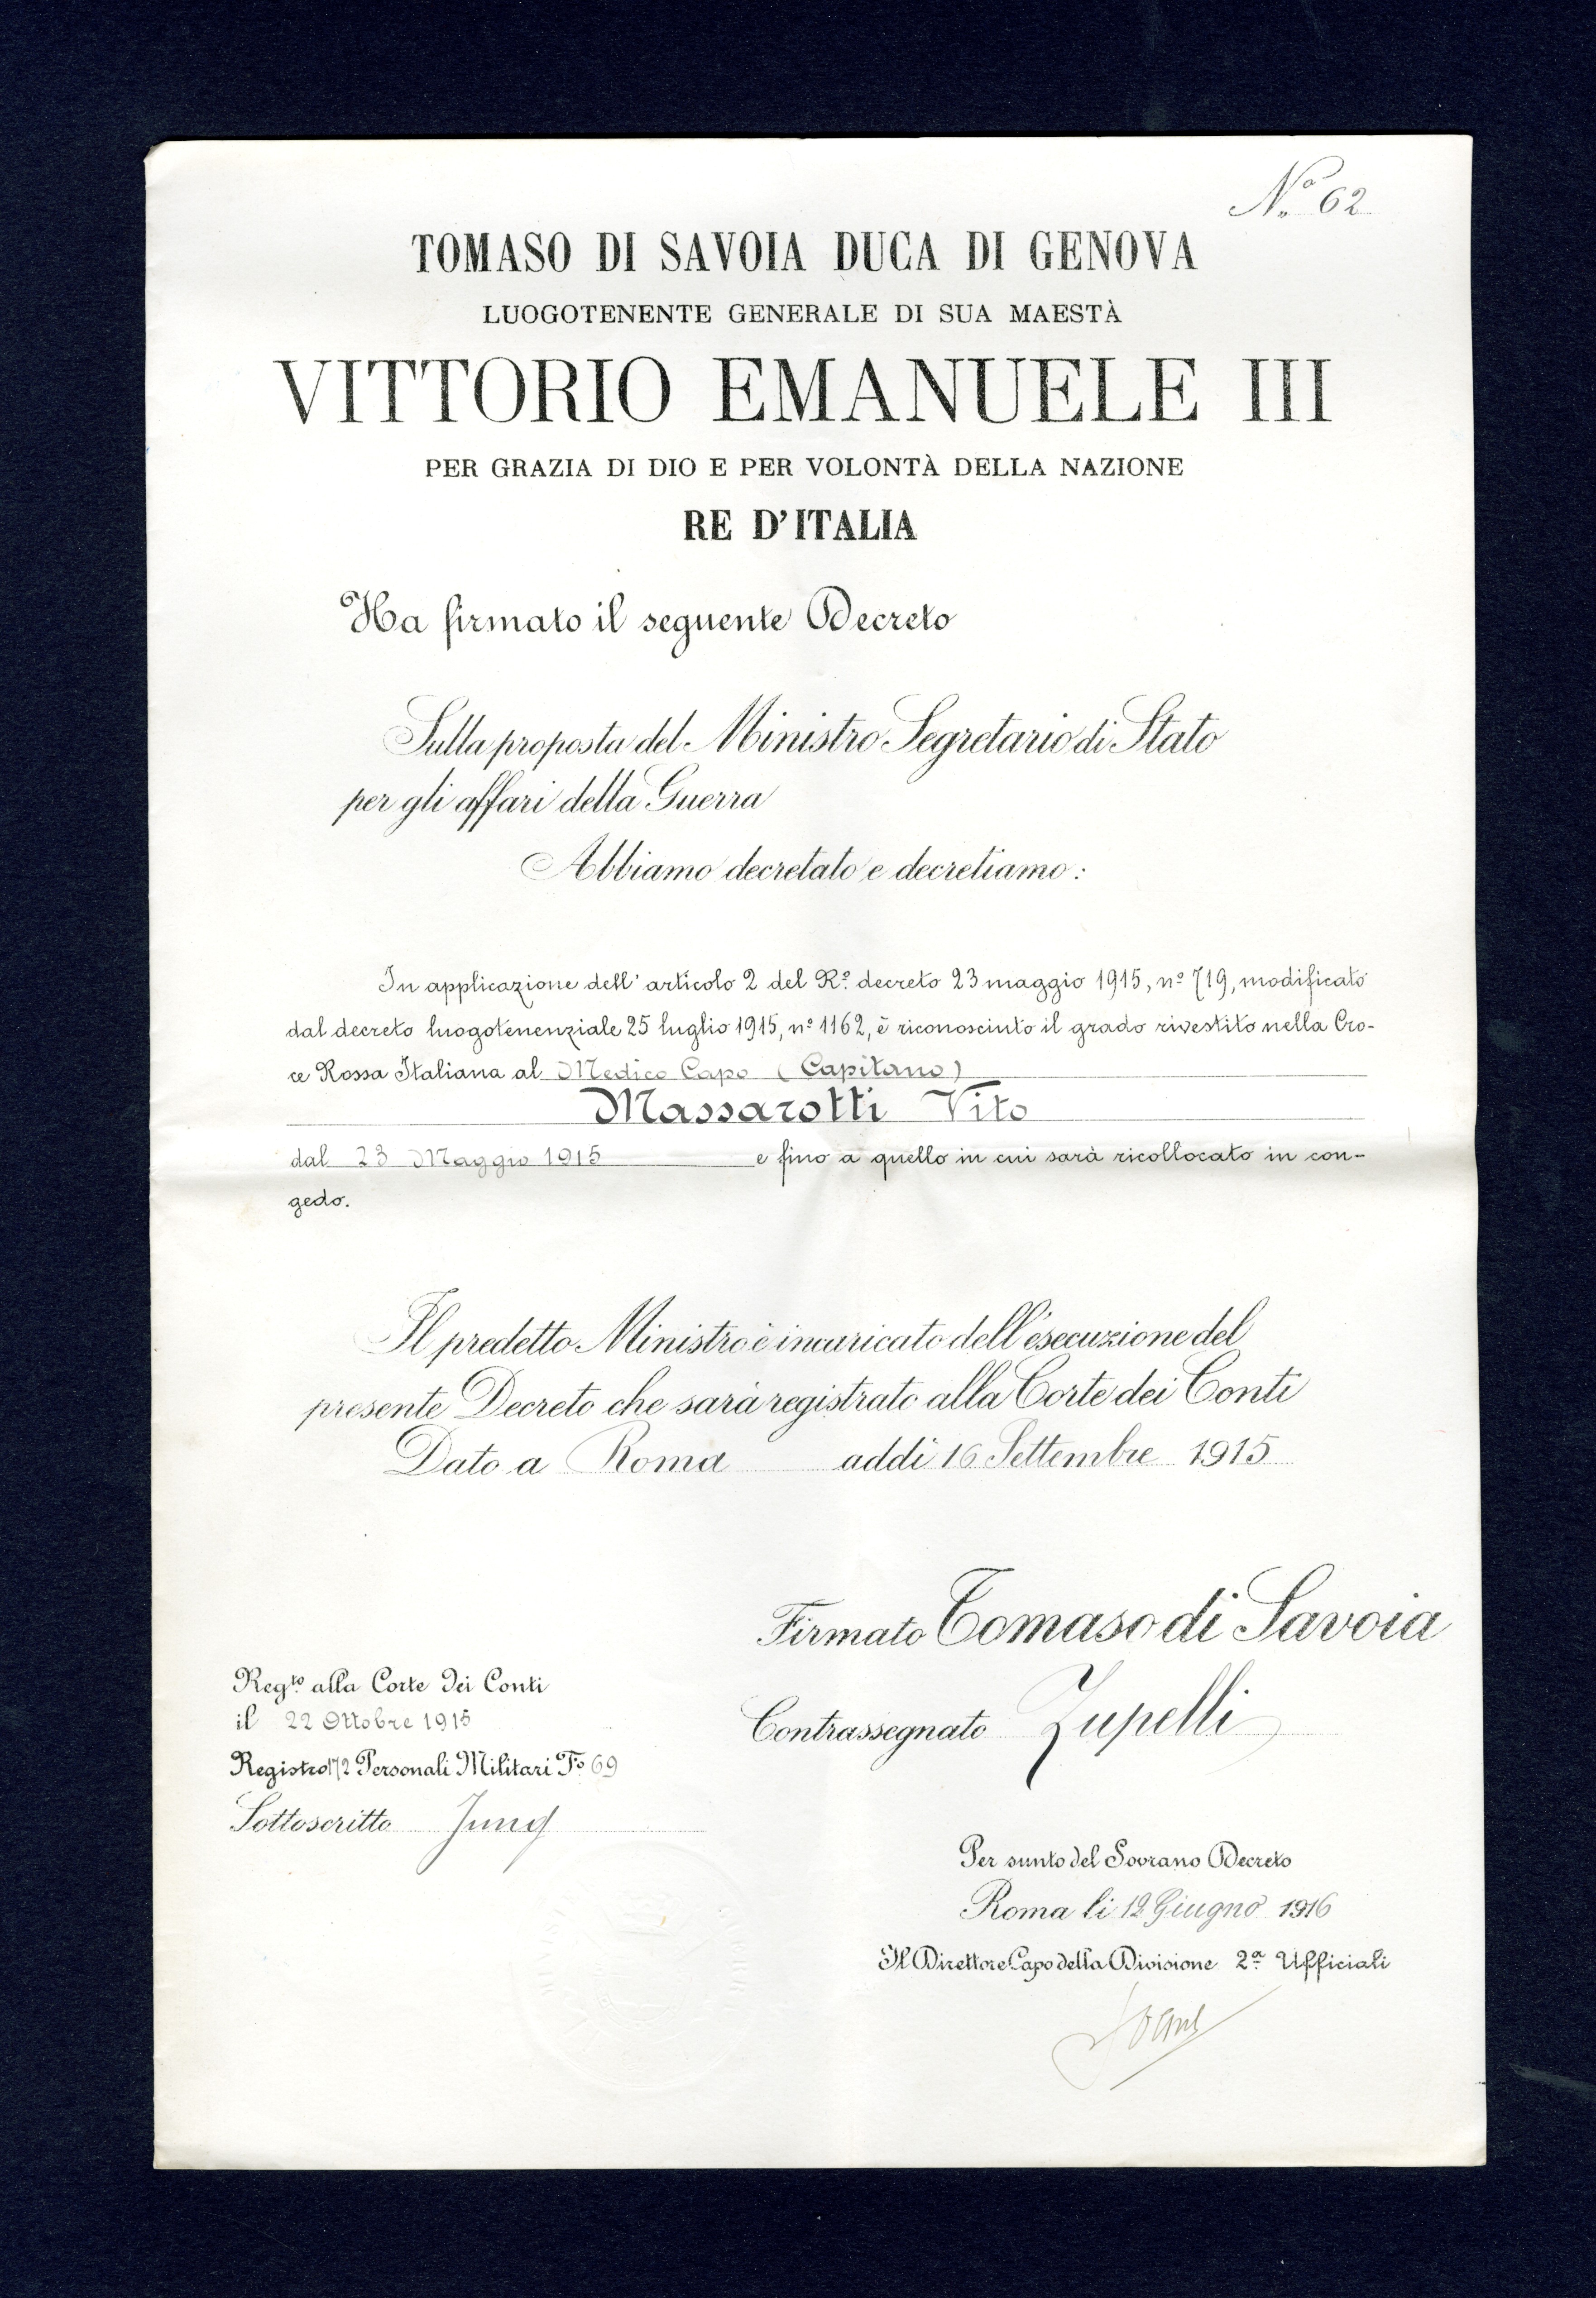 Nº 62
TOMASO DI SAVOIA DUCA DI GENOVA
LUOGOTENENTE GENERALE DI SUA MAESTÀ
VITTORIO EMANUELE III
PER GRAZIA DI DIO E PER VOLONTÀ DELLA NAZIONE
RE D'ITALIA
Ha firmato il seguente Decreto
Sulla proposta del Ministro Segretario di Stato
per gli affari della Guerra
Abbiamo decretato e decretiamo:
In applicazione dell'articolo 2 del Rº decreto 23 maggio 1915, nº 719, modificato
dal decreto luogotenenziale 25 luglio 1915, nº 1162, è riconosciuto il grado rivestito nella Cro-
ce Rossa Italiana al Medico Capo (Capitano)
Massarotti Vito
dal 23 Maggio 1915 e fino a quello in cui sarà ricollocato in con-
gedo.
Il predetto Ministro è incaricato dell'esecuzione del
presente Decreto che sarà registrato alla Corte dei Conti
Dato a Roma addì 16 Settembre 1915
Firmato Tomaso di Savoia
Contrassegnato Zupelli
Regto alla Corte dei Conti
il 22 Ottobre 1915
Registro 172 Personali Militari Fº 69
Sottoscritto Jung
Per sunto del Sovrano Decreto
Roma li 12 Giugno 1916
Il Direttore Capo della Divisione 2ª Ufficiali